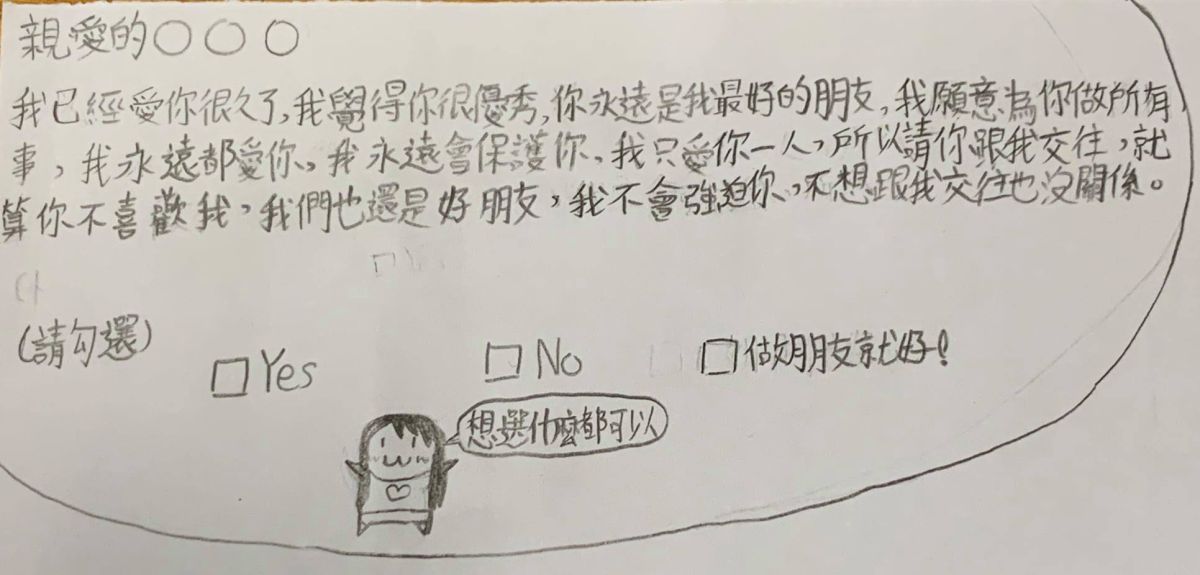 親愛的○○○
我已經愛你很久了,我覺得你很優秀,你永遠是我最好的朋友,我願意為你做所有
事,我永遠都愛你、我永遠會保護你、我只愛你一人,所以請你跟我交往,就
算你不喜歡我,我們也還是好朋友,我不會強迫你,不想跟我交往也沒關係。
(請勾選)
□Yes □No □做朋友就好!
想選什麼都可以